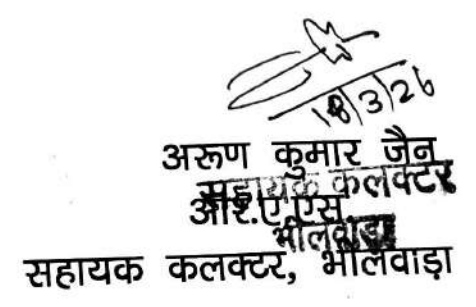 18/3/26
अरूण कुमार जैन
सहायक कलक्टर
आर.ए.एस
भीलवाड़ा
सहायक कलक्टर, भीलवाड़ा